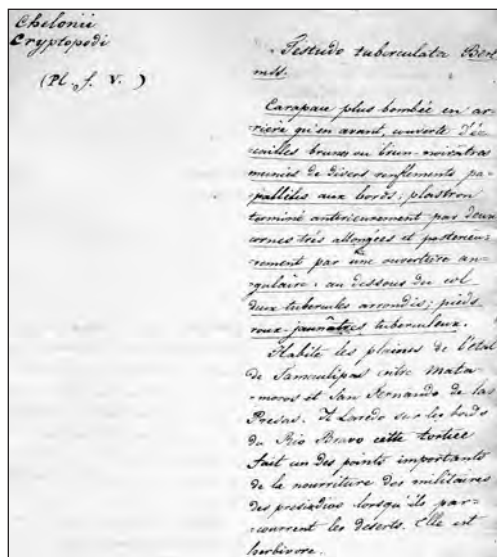 Chelonii
Cryptopodi
(Pl. f. V. )
Testudo tuberculata Berl
mss.
Carapace plus bombée en ar-
rière qu'en avant, couverte d'é-
cailles brunes ou brun-noirâtres
munies de divers renflements pa-
rallèles aux bords; plastron
terminé antérieurement par deux
cornes très allongées et postérieu-
rement par une ouverture an-
gulaire. au dessous du col
deux tubercules arrondis; pieds
roux-jaunâtres tuberculeux.
Habite les plaines de l'état
de Tamaulipas entre Mata-
moros et San Fernando de las
Presas. A Laredo sur les bords
du Rio Bravo cette tortue
fait un des points importants
de la nourriture des militaires
des presidios lorsqu'ils par-
courrent les deserts. Elle est
herbivore.